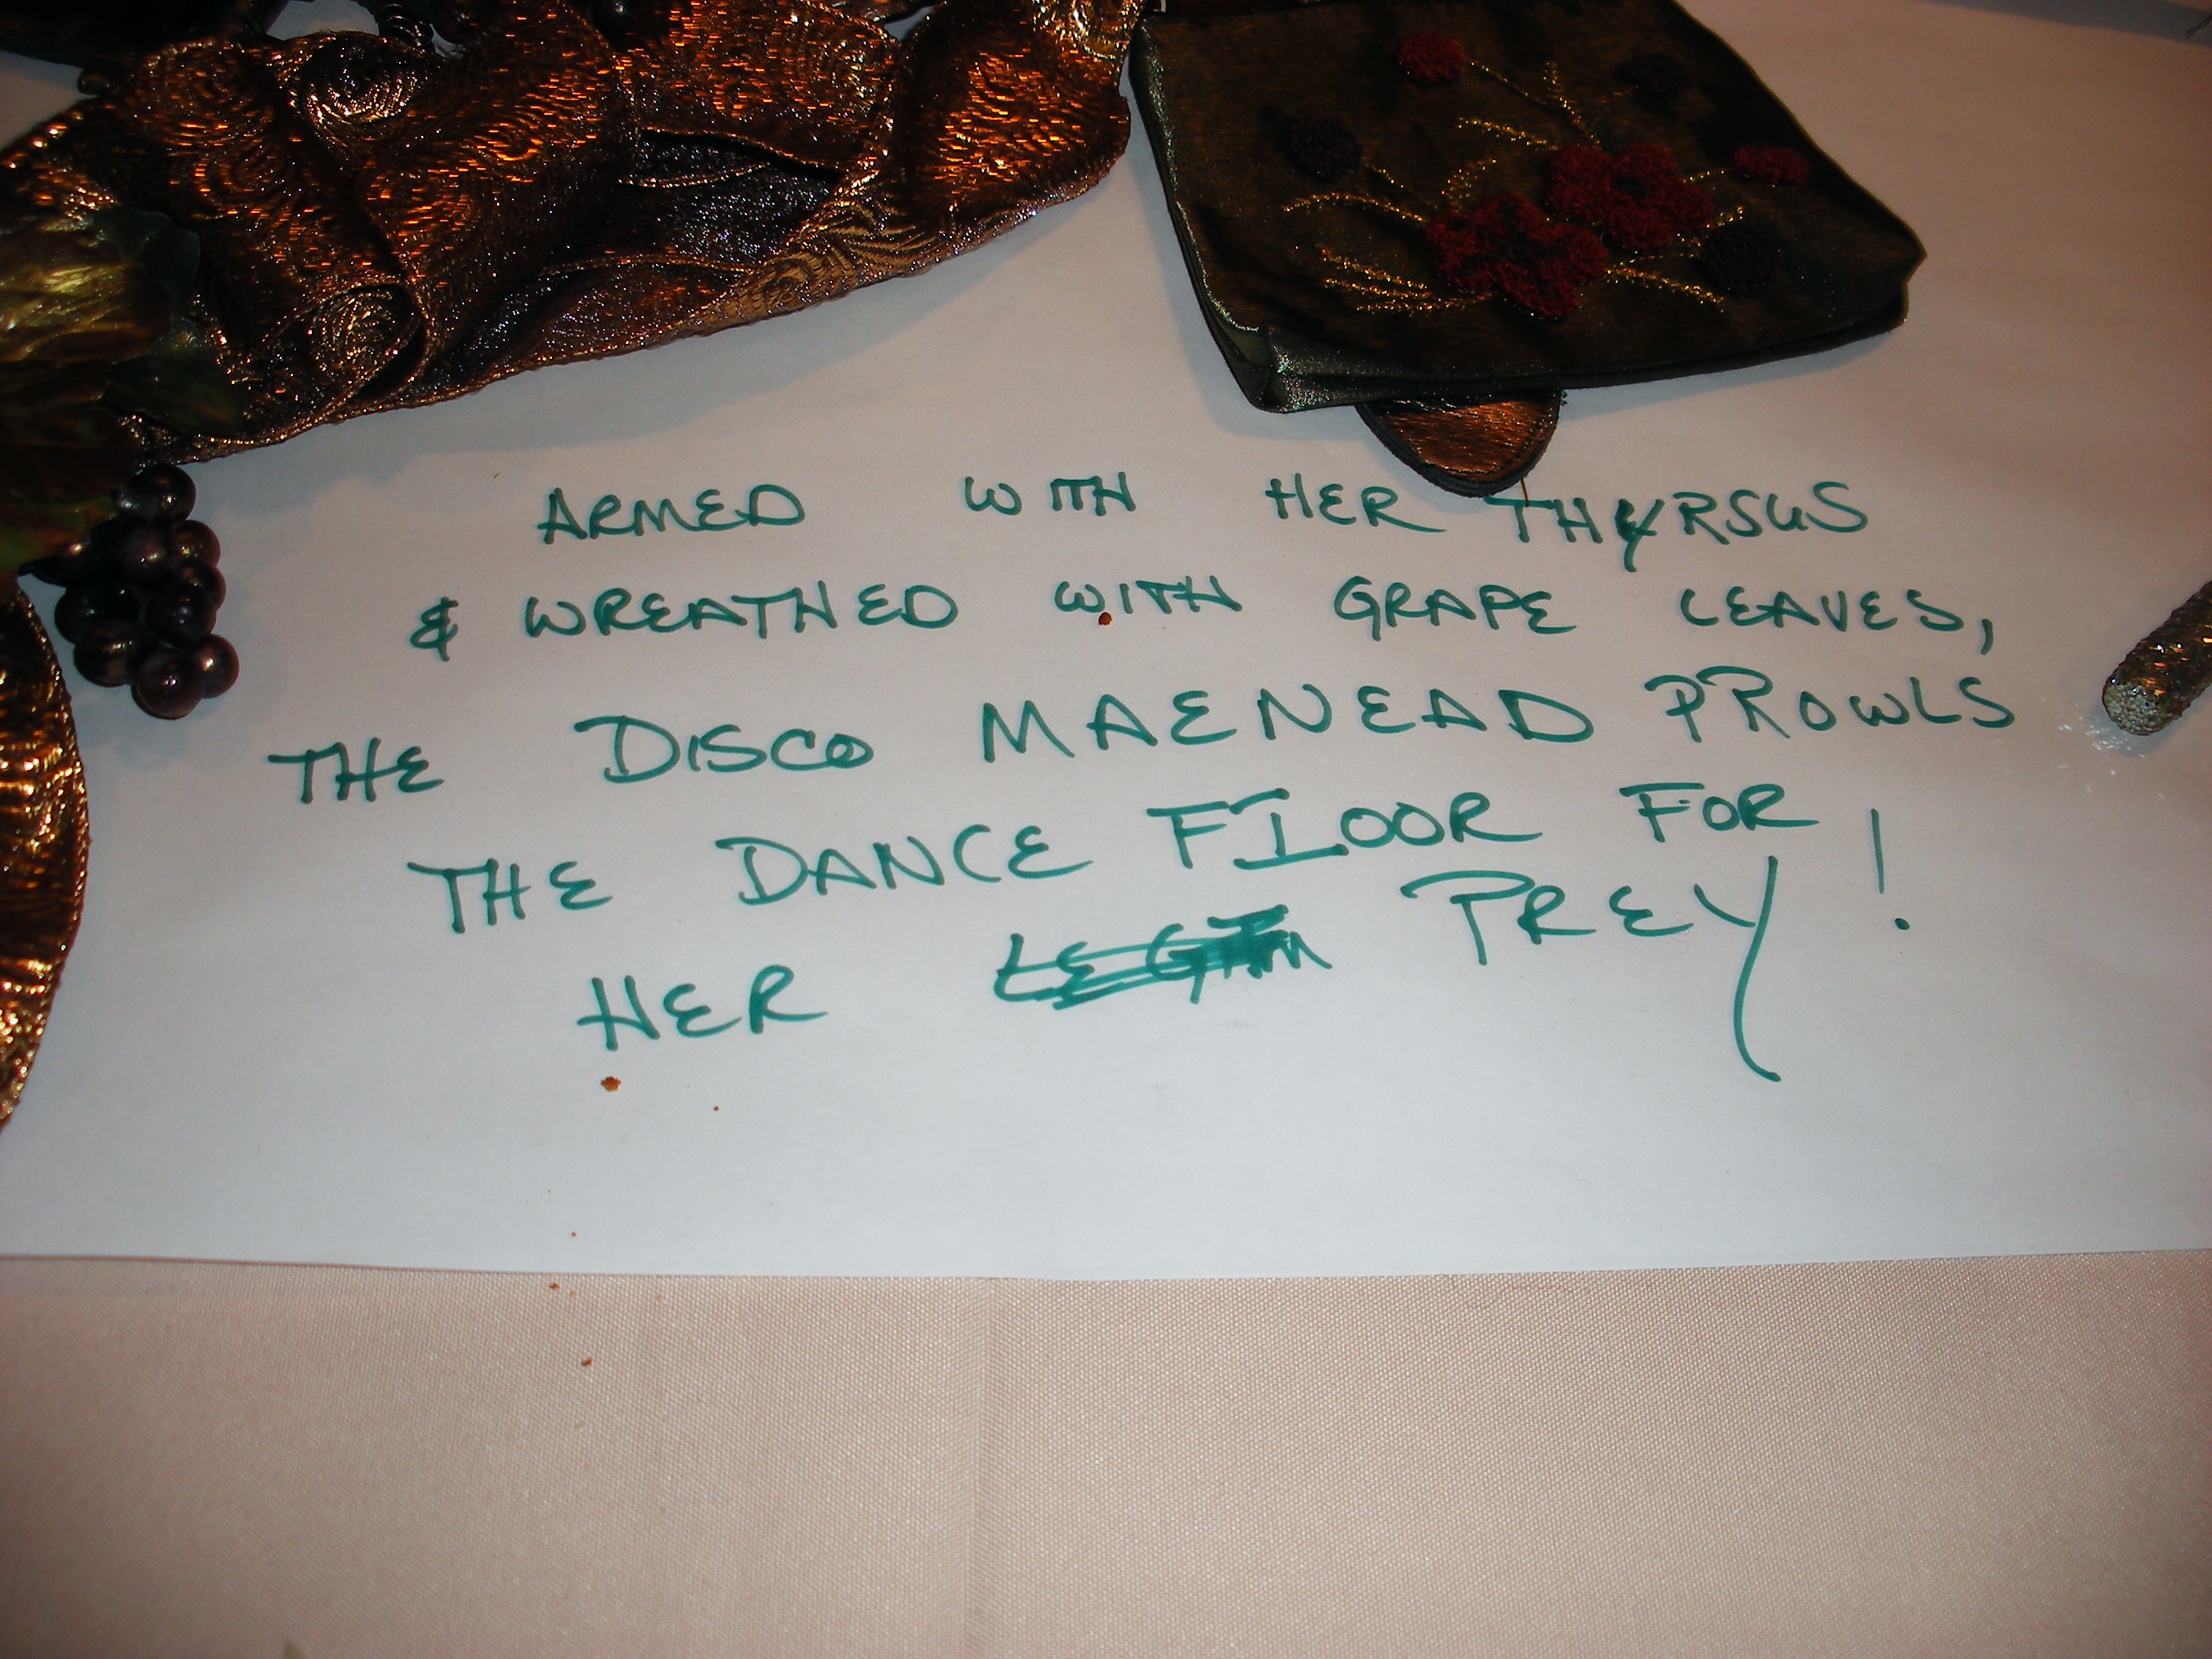 ARMED WITH HER THYRSUS
& WREATHED WITH GRAPE LEAVES,
THE DISCO MAENEAD PROWLS
THE DANCE FLOOR FOR
HER PREY!